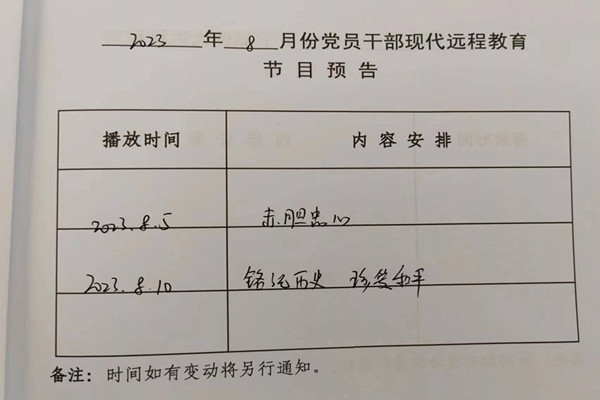 2023年8月份党员干部现代远程教育
节目预告
播放时间 内容安排
2023.8.5 赤胆忠心
2023.8.10 铭记历史 珍爱和平
备注：时间如有变动将另行通知。